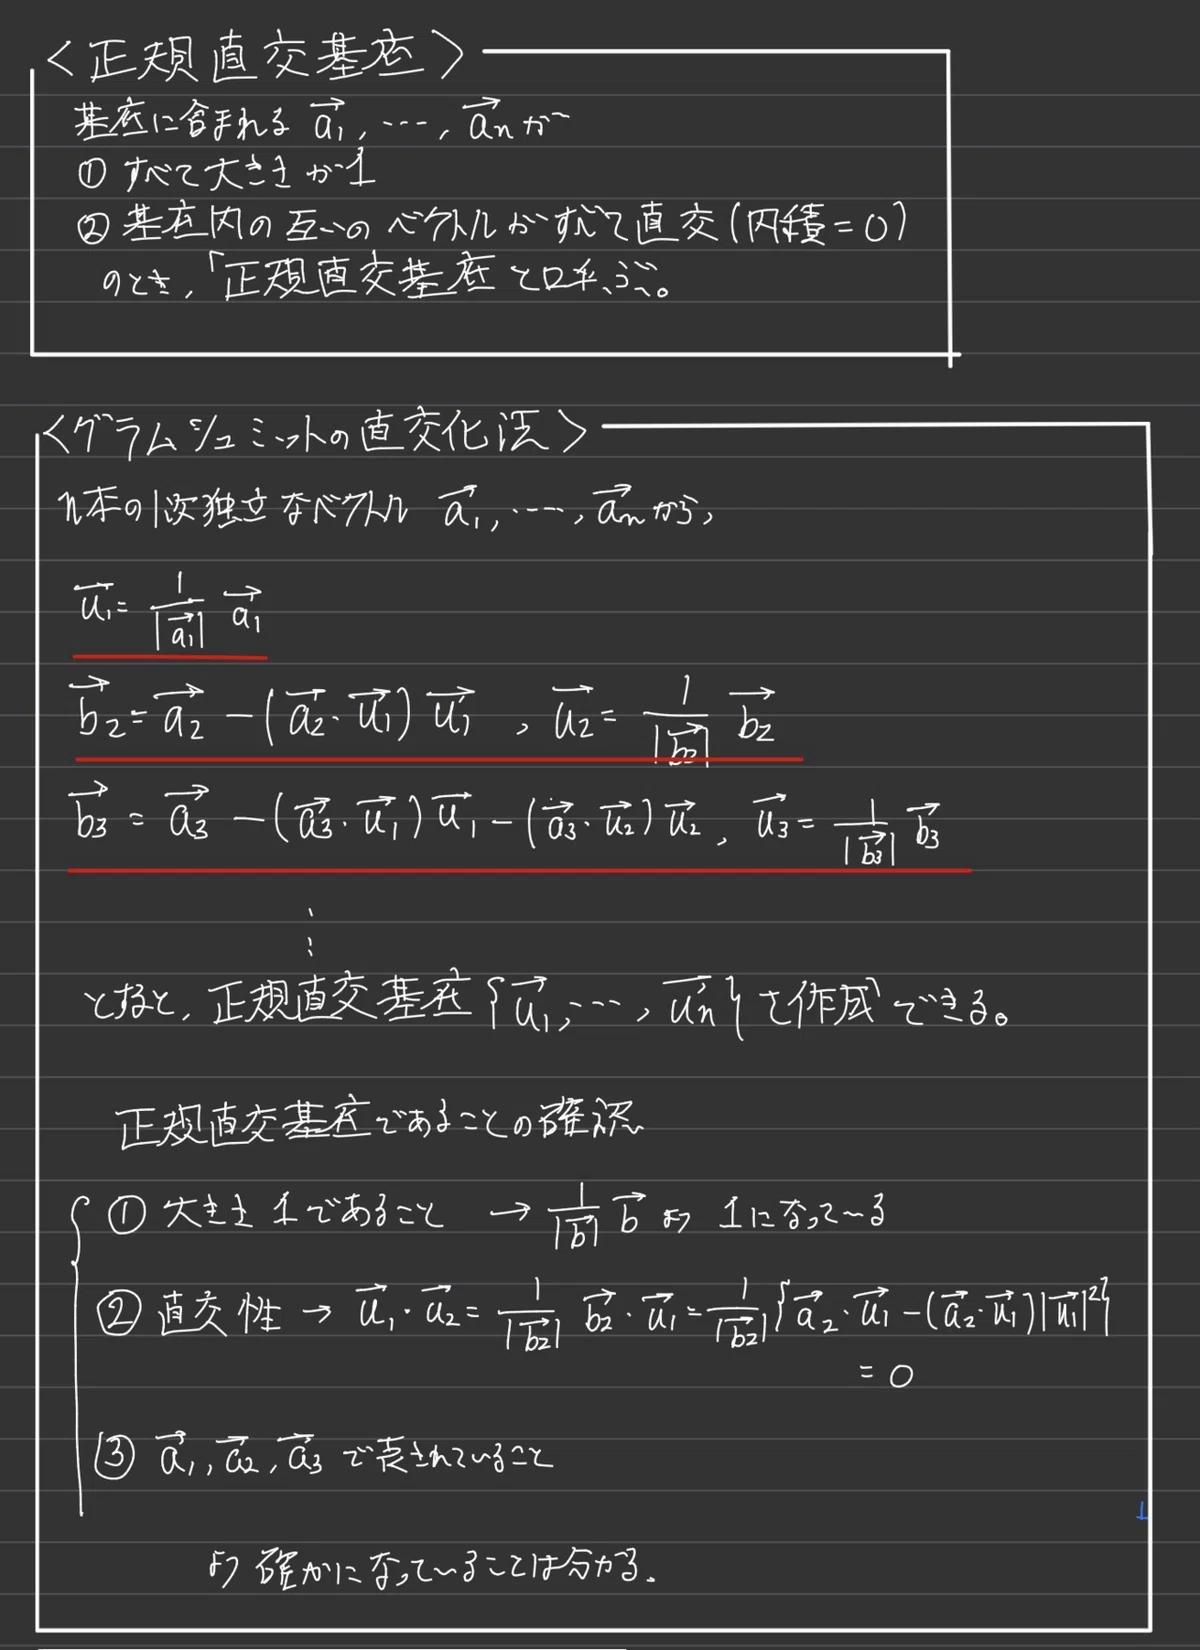 <正規直交基底>
基底に含まれる a₁→, ‥‥, aₙ→ が
① すべて大きさが1
② 基底内の互いのベクトルがすべて直交(内積=0)
のとき,「正規直交基底と呼ぶ。
<グラムシュミットの直交化法>
n本の1次独立なベクトル a₁→, ‥‥, aₙ→ から,
u₁→ = 1/|a₁→| a₁→
b₂→ = a₂→ - (a₂→・u₁→) u₁→ , u₂→ = 1/|b₂→| b₂→
b₃→ = a₃→ - (a₃→・u₁→) u₁→ - (a₃→・u₂→) u₂→, u₃→ = 1/|b₃→| b₃→
⋮
とすると, 正規直交基底 {u₁→, ‥‥, uₙ→} を作成できる。
正規直交基底であることの確認
① 大きさ1であること → 1/|b→| b→ より 1になっている
② 直交性 → u₁→・u₂→ = 1/|b₂→| b₂→・u₁→ = 1/|b₂→| {a₂→・u₁→ - (a₂→・u₁→)|u₁→|²}
= 0
③ a₁→, a₂→, a₃→ で表されていること
より 確かになっていることは分かる.